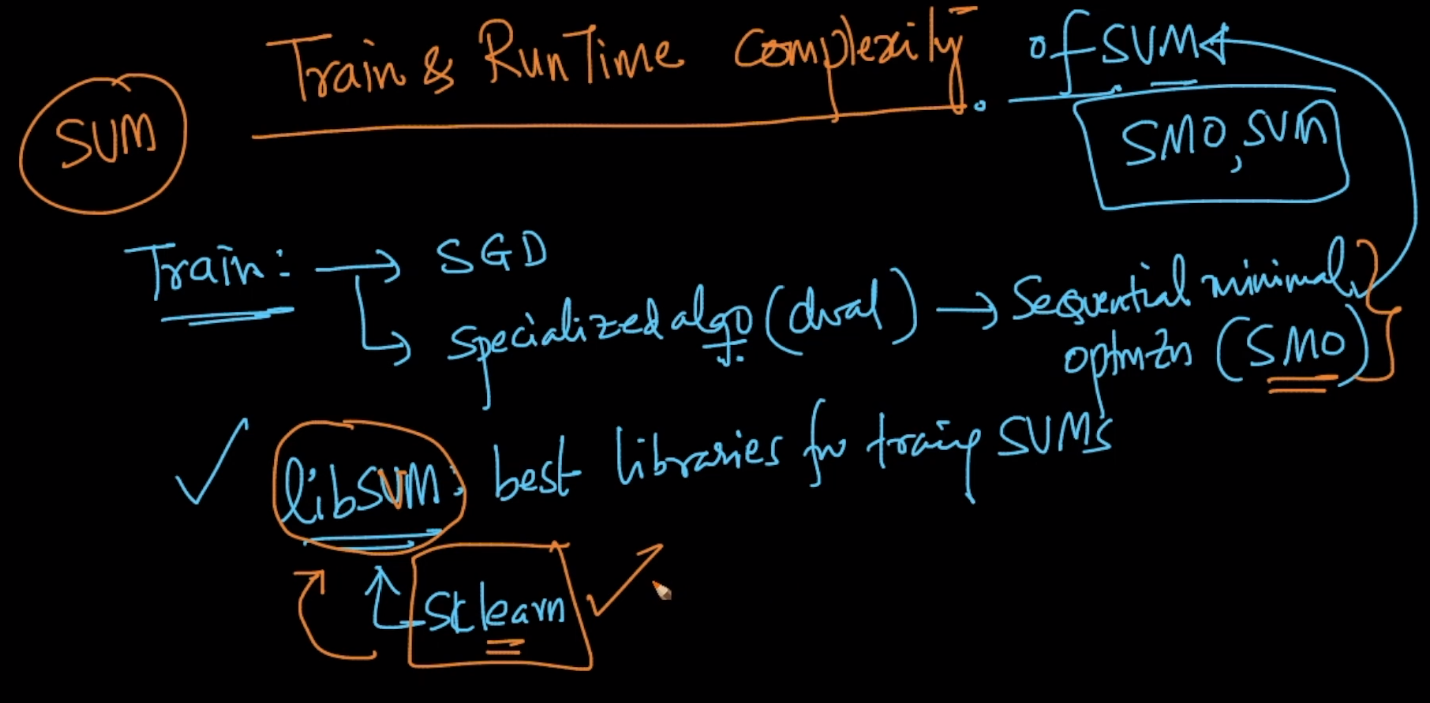 Train & Run Time Complexity of SVM
SVM
SMO, SVM
Train: → SGD
↳ specialized algo (dual) → Sequential minimal
optmzn (SMO)
✓ libSVM: best libraries for traing SVMs
sklearn ✓